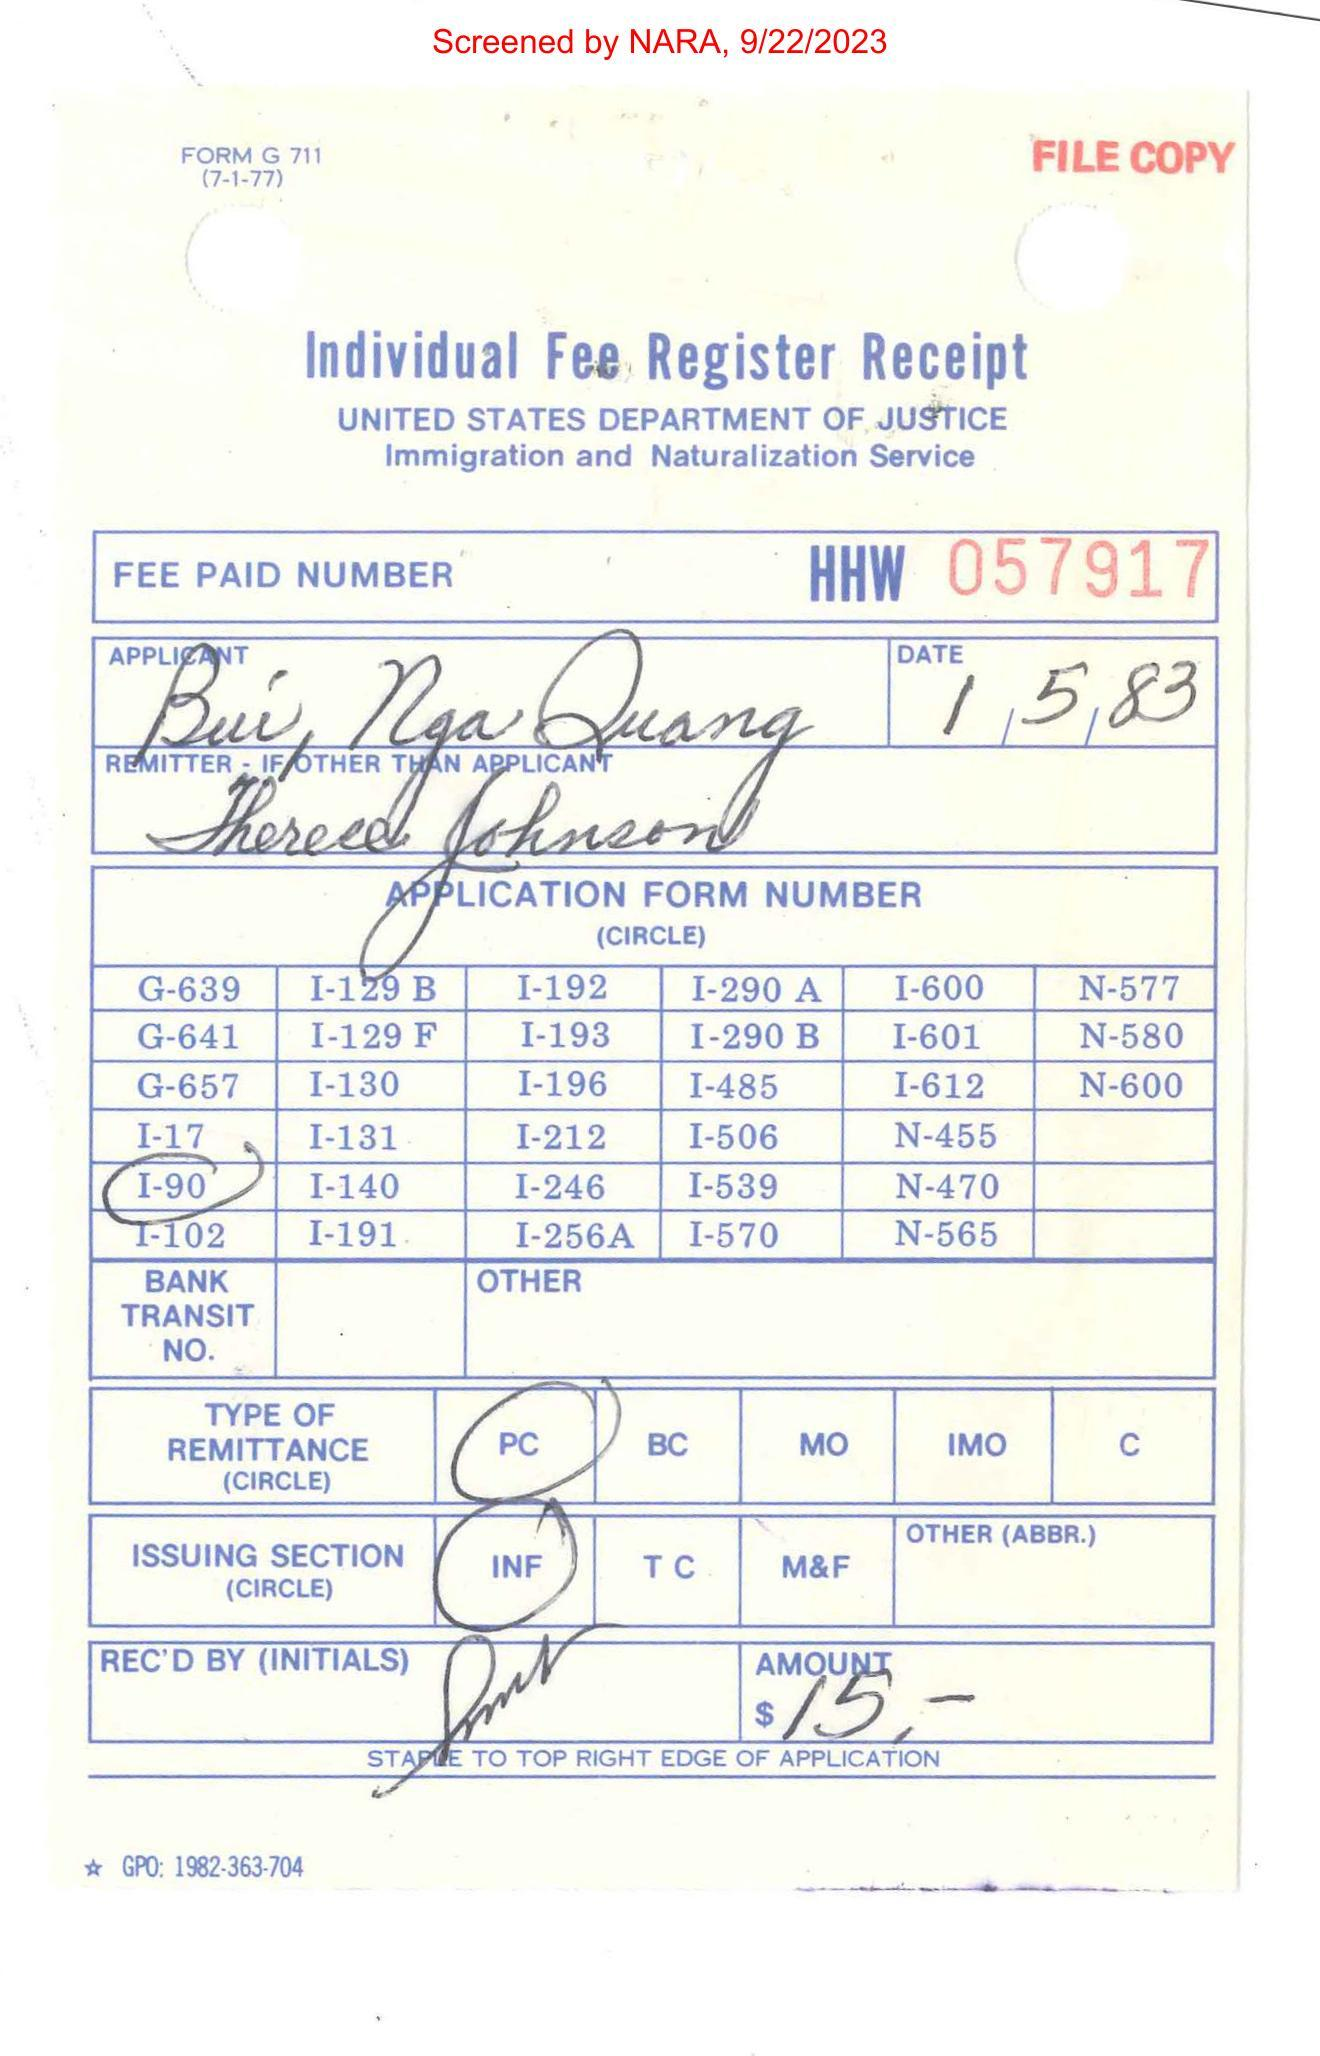 Screened by NARA, 9/22/2023
FORM G 711
(7-1-77)
FILE COPY
Individual Fee Register Receipt
UNITED STATES DEPARTMENT OF JUSTICE
Immigration and Naturalization Service
FEE PAID NUMBER HHW 057917
APPLICANT DATE
Bui, Nga Quang 1, 5, 83
REMITTER - IF OTHER THAN APPLICANT
Johnson
APPLICATION FORM NUMBER
(CIRCLE)
G-639 I-129 B I-192 I-290 A I-600 N-577
G-641 I-129 F I-193 I-290 B I-601 N-580
G-657 I-130 I-196 I-485 I-612 N-600
I-17 I-131 I-212 I-506 N-455
I-90 I-140 I-246 I-539 N-470
I-102 I-191 I-256A I-570 N-565
BANK TRANSIT NO. OTHER
TYPE OF REMITTANCE (CIRCLE) PC BC MO IMO C
ISSUING SECTION (CIRCLE) INF T C M&F OTHER (ABBR.)
REC'D BY (INITIALS) AMOUNT
$ 15,-
STAPLE TO TOP RIGHT EDGE OF APPLICATION
☆ GPO: 1982-363-704